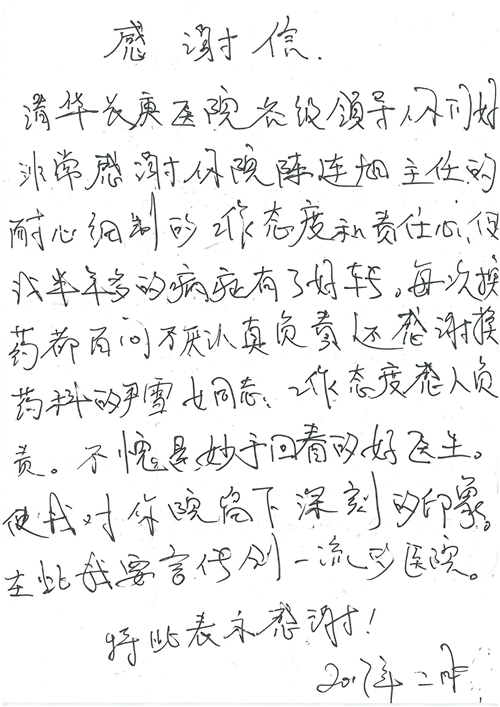 感谢信.
清华长庚医院各级领导你们好
非常感谢你院陈连旭主任的
耐心细制的工作态度和责任心,使
我半年多的病症有了好转。每次换
药都百问不厌认真负责还感谢换
药科的尹雪女同志:工作态度认真负
责。不愧是妙手回春的好医生。
使我对你院留下深刻的印象。
在此我要言
一流的医院。
特此表示感谢!
2017年二月